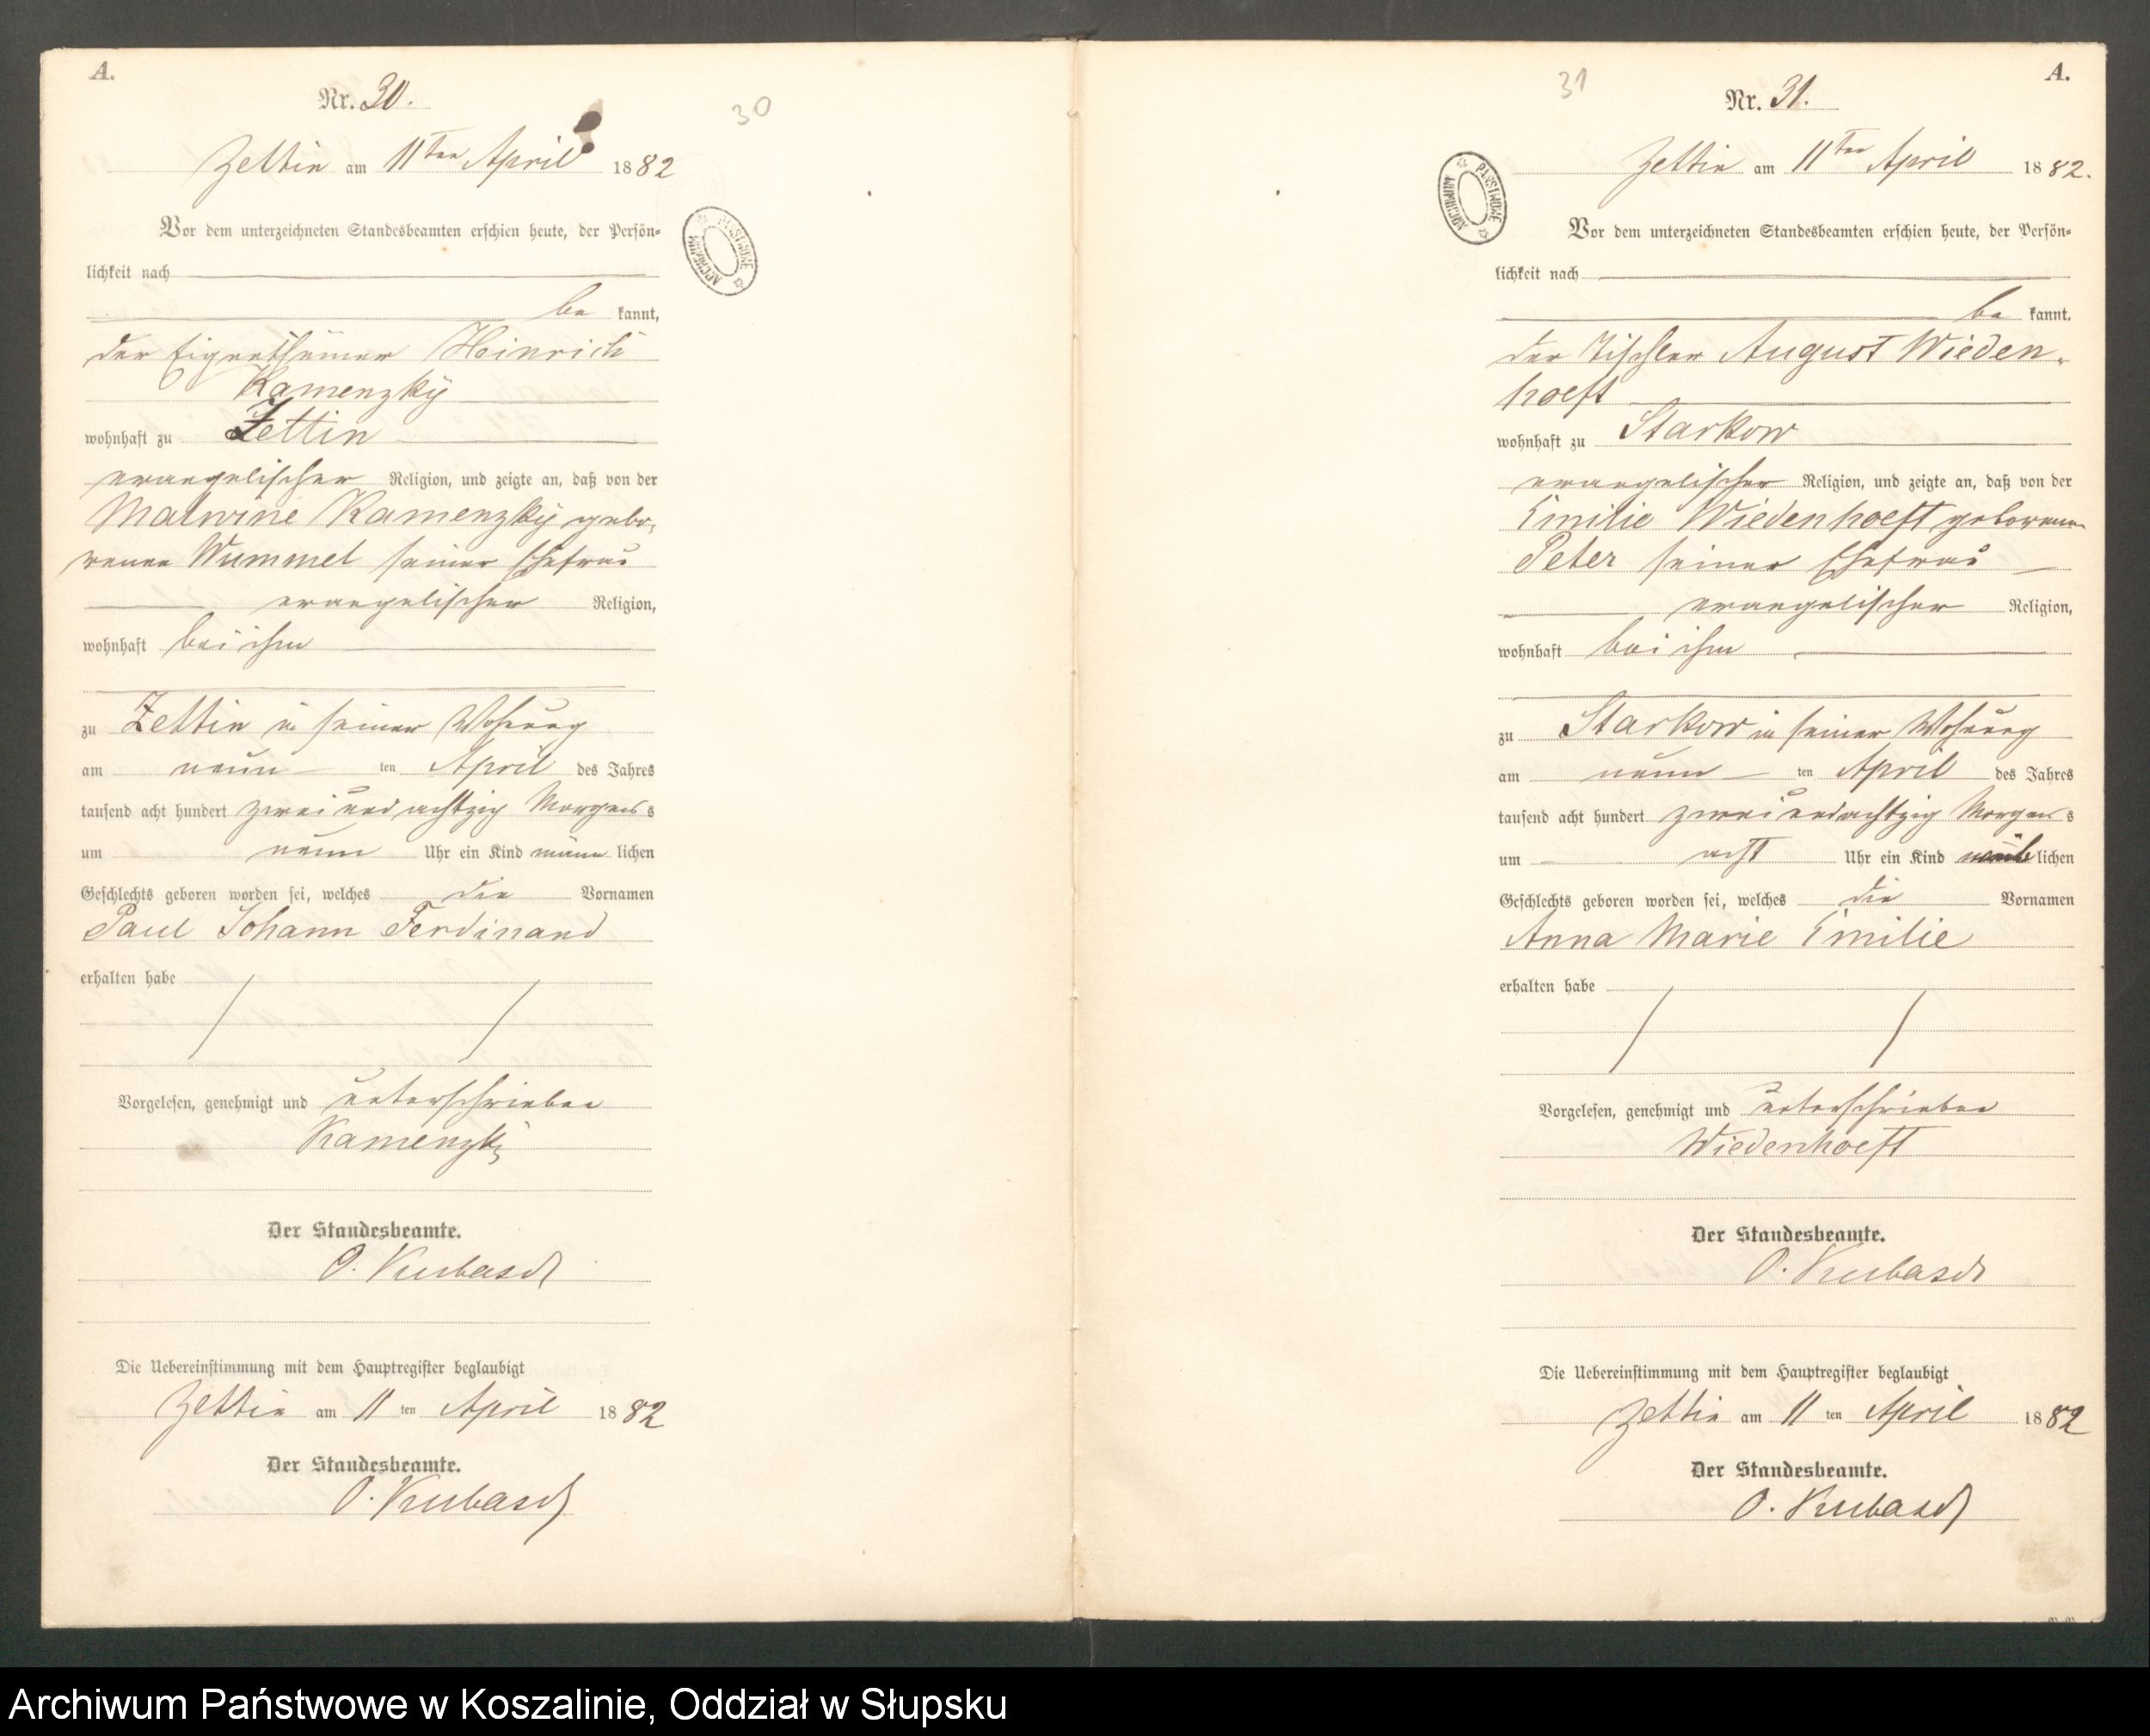 A.
Nr. 30.
30
Zettin am 11ten April 1882
Vor dem unterzeichneten Standesbeamten erschien heute, der Persön-
lichkeit nach
be kannt,
der Eigenthümer Heinrich
Kamenzky
wohnhaft zu Zettin
evangelischer Religion, und zeigte an, daß von der
Malwine Kamenzky gebo-
renen Wummel seiner Ehefrau
evangelischer Religion,
wohnhaft bei ihm
zu Zettin in seiner Wohnung
am neun ten April des Jahres
tausend acht hundert zwei und achtzig Morgens
um neun Uhr ein Kind männ lichen
Geschlechts geboren worden sei, welches die Vornamen
Paul Johann Ferdinand
erhalten habe
Vorgelesen, genehmigt und unterschrieben
Kamenzky
Der Standesbeamte.
O. Kubasch
Die Uebereinstimmung mit dem Hauptregister beglaubigt
Zettin am 11 ten April 1882
Der Standesbeamte.
O. Kubasch
ARCHIWUM PAŃSTWOWE
A.
31
Nr. 31.
Zettin am 11ten April 1882.
ARCHIWUM PAŃSTWOWE
Vor dem unterzeichneten Standesbeamten erschien heute, der Persön-
lichkeit nach
be kannt,
der Tischler August Wieden-
hoeft
wohnhaft zu Starkow
evangelischer Religion, und zeigte an, daß von der
Emilie Wiedenhoeft geborenen
Peter seiner Ehefrau
evangelischer Religion,
wohnhaft bei ihm
zu Starkow in seiner Wohnung
am neun ten April des Jahres
tausend acht hundert zwei und achtzig Morgens
um acht Uhr ein Kind weib lichen
Geschlechts geboren worden sei, welches die Vornamen
Anna Marie Emilie
erhalten habe
Vorgelesen, genehmigt und unterschrieben
Wiedenhoeft
Der Standesbeamte.
O. Kubasch
Die Uebereinstimmung mit dem Hauptregister beglaubigt
Zettin am 11 ten April 1882
Der Standesbeamte.
O. Kubasch
Archiwum Państwowe w Koszalinie, Oddział w Słupsku